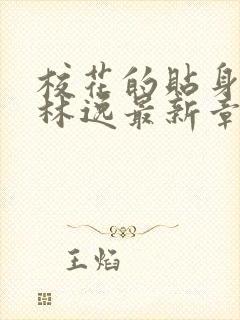 校花的贴身
林逸最新章
王焰